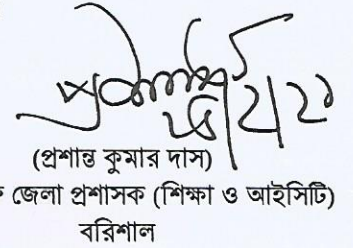 (প্রশান্ত কুমার দাস)
জেলা প্রশাসক (শিক্ষা ও আইসিটি)
বরিশাল